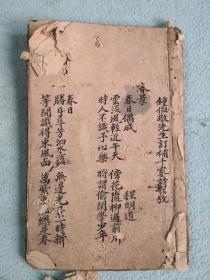 鍾伯敬先生訂補千家詩
春景
春日偶成 程明道
雲淡風輕近午天 傍花隨柳過前川
時人不識予心樂 將謂偷閒學少年
春日
勝日尋芳泗水濱 無邊光景一時新
等閒識得東風面 萬紫千紅總是春